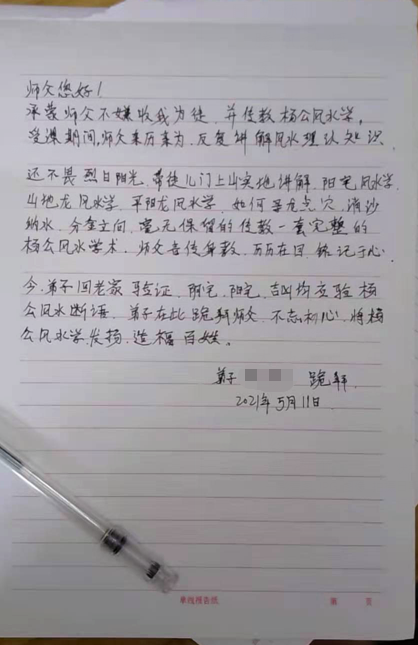 师父您好！
承蒙师父不嫌收我为徒，并传教杨公风水学，
受课期间，师父亲历亲为，反复讲解风水理认知识
还不畏烈日阳光，带徒儿门上山实地讲解，阳宅风水学
山地龙风水学，平阳龙风水学，如何寻龙点穴，消沙
纳水，分金立向，毫无保留的传教一套完整的
杨公风水学术，师父言传身教，历历在目，铭记于心
今，弟子回老家验证，阴宅，阳宅，吉凶均应验杨
公风水断语，弟子在此跪拜师父，不忘初心，将杨
公风水学发扬，造福百姓。
弟子 跪拜
2021年5月11日
单线报告纸 第 页